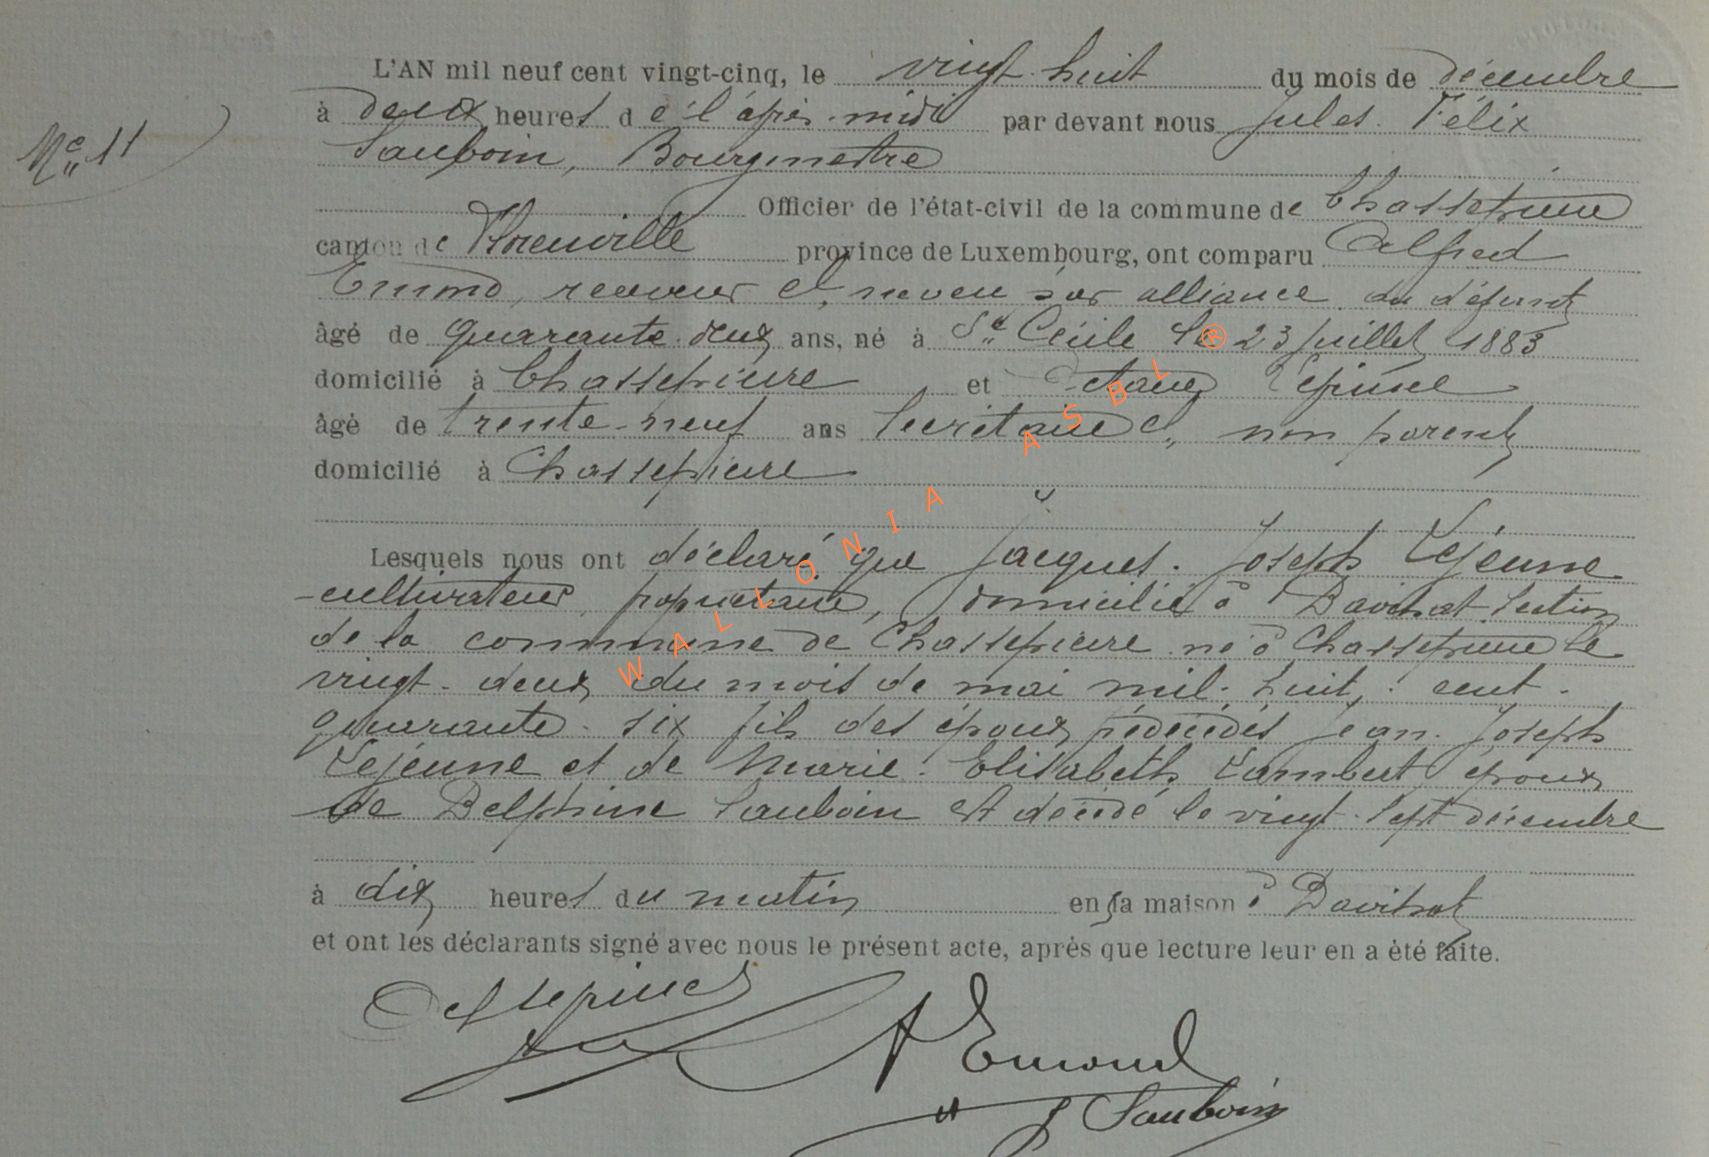 L'AN mil neuf cent vingt-cinq, le vingt-huit du mois de décembre
à deux heures de l'après-midi par devant nous Jules Félix
Nc 11
Sauboin, Bourgmestre
Officier de l'état-civil de la commune de Chassepierre
canton de Florenville province de Luxembourg, ont comparu Alfred
Emond, receveur Cl, neveu par alliance du défunt
âgé de quarante-deux ans, né à Ste Cécile le 23 juillet 1883
domicilié à Chassepierre et Octave Lépine
âgé de trente-neuf ans secrétaire Cl, non parent
domicilié à Chassepierre
Lesquels nous ont déclaré que Jacques-Joseph Lejeune
cultivateur, propriétaire, domicilié à section
de la commune de Chassepierre né à Chassepierre le
vingt-deux du mois de mai mil-huit-cent-
quarante-six fils des époux prédécédés Jean-Joseph
Lejeune et de Marie-Elisabeth Lambert époux
de Delphine Sauboin est décédé le vingt-sept décembre
à dix heures du matin en sa maison à
et ont les déclarants signé avec nous le présent acte, après que lecture leur en a été faite.
A Emond
J Sauboin
WALLONIA ASBL ®